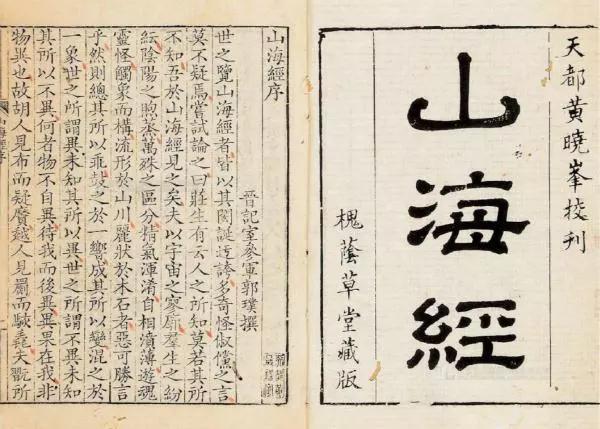 天都黄曉峯挍刊
山海經
槐蔭草堂藏版
山海經序
晉記室參軍郭璞撰
世之覽山海經者皆以其閎誕迂誇多奇怪俶儻之言
莫不疑焉嘗試論之曰莊生有云人之所知莫若其所
不知吾於山海經見之矣夫以宇宙之寥廓羣生之紛
紜陰陽之煦蒸萬殊之區分精氣渾淆自相濆薄遊魂
靈怪觸象而構流形於山川麗狀於木石者惡可勝言
乎然則總其所以乖鼓之於一響成其所以變混之於
一象世之所謂異未知其所以異世之所謂不異未知
其所以不異何者物不自異待我而後異異果在我非
物異也故胡人見布而疑黂越人見罽而駭毳夫翫所
山海經序